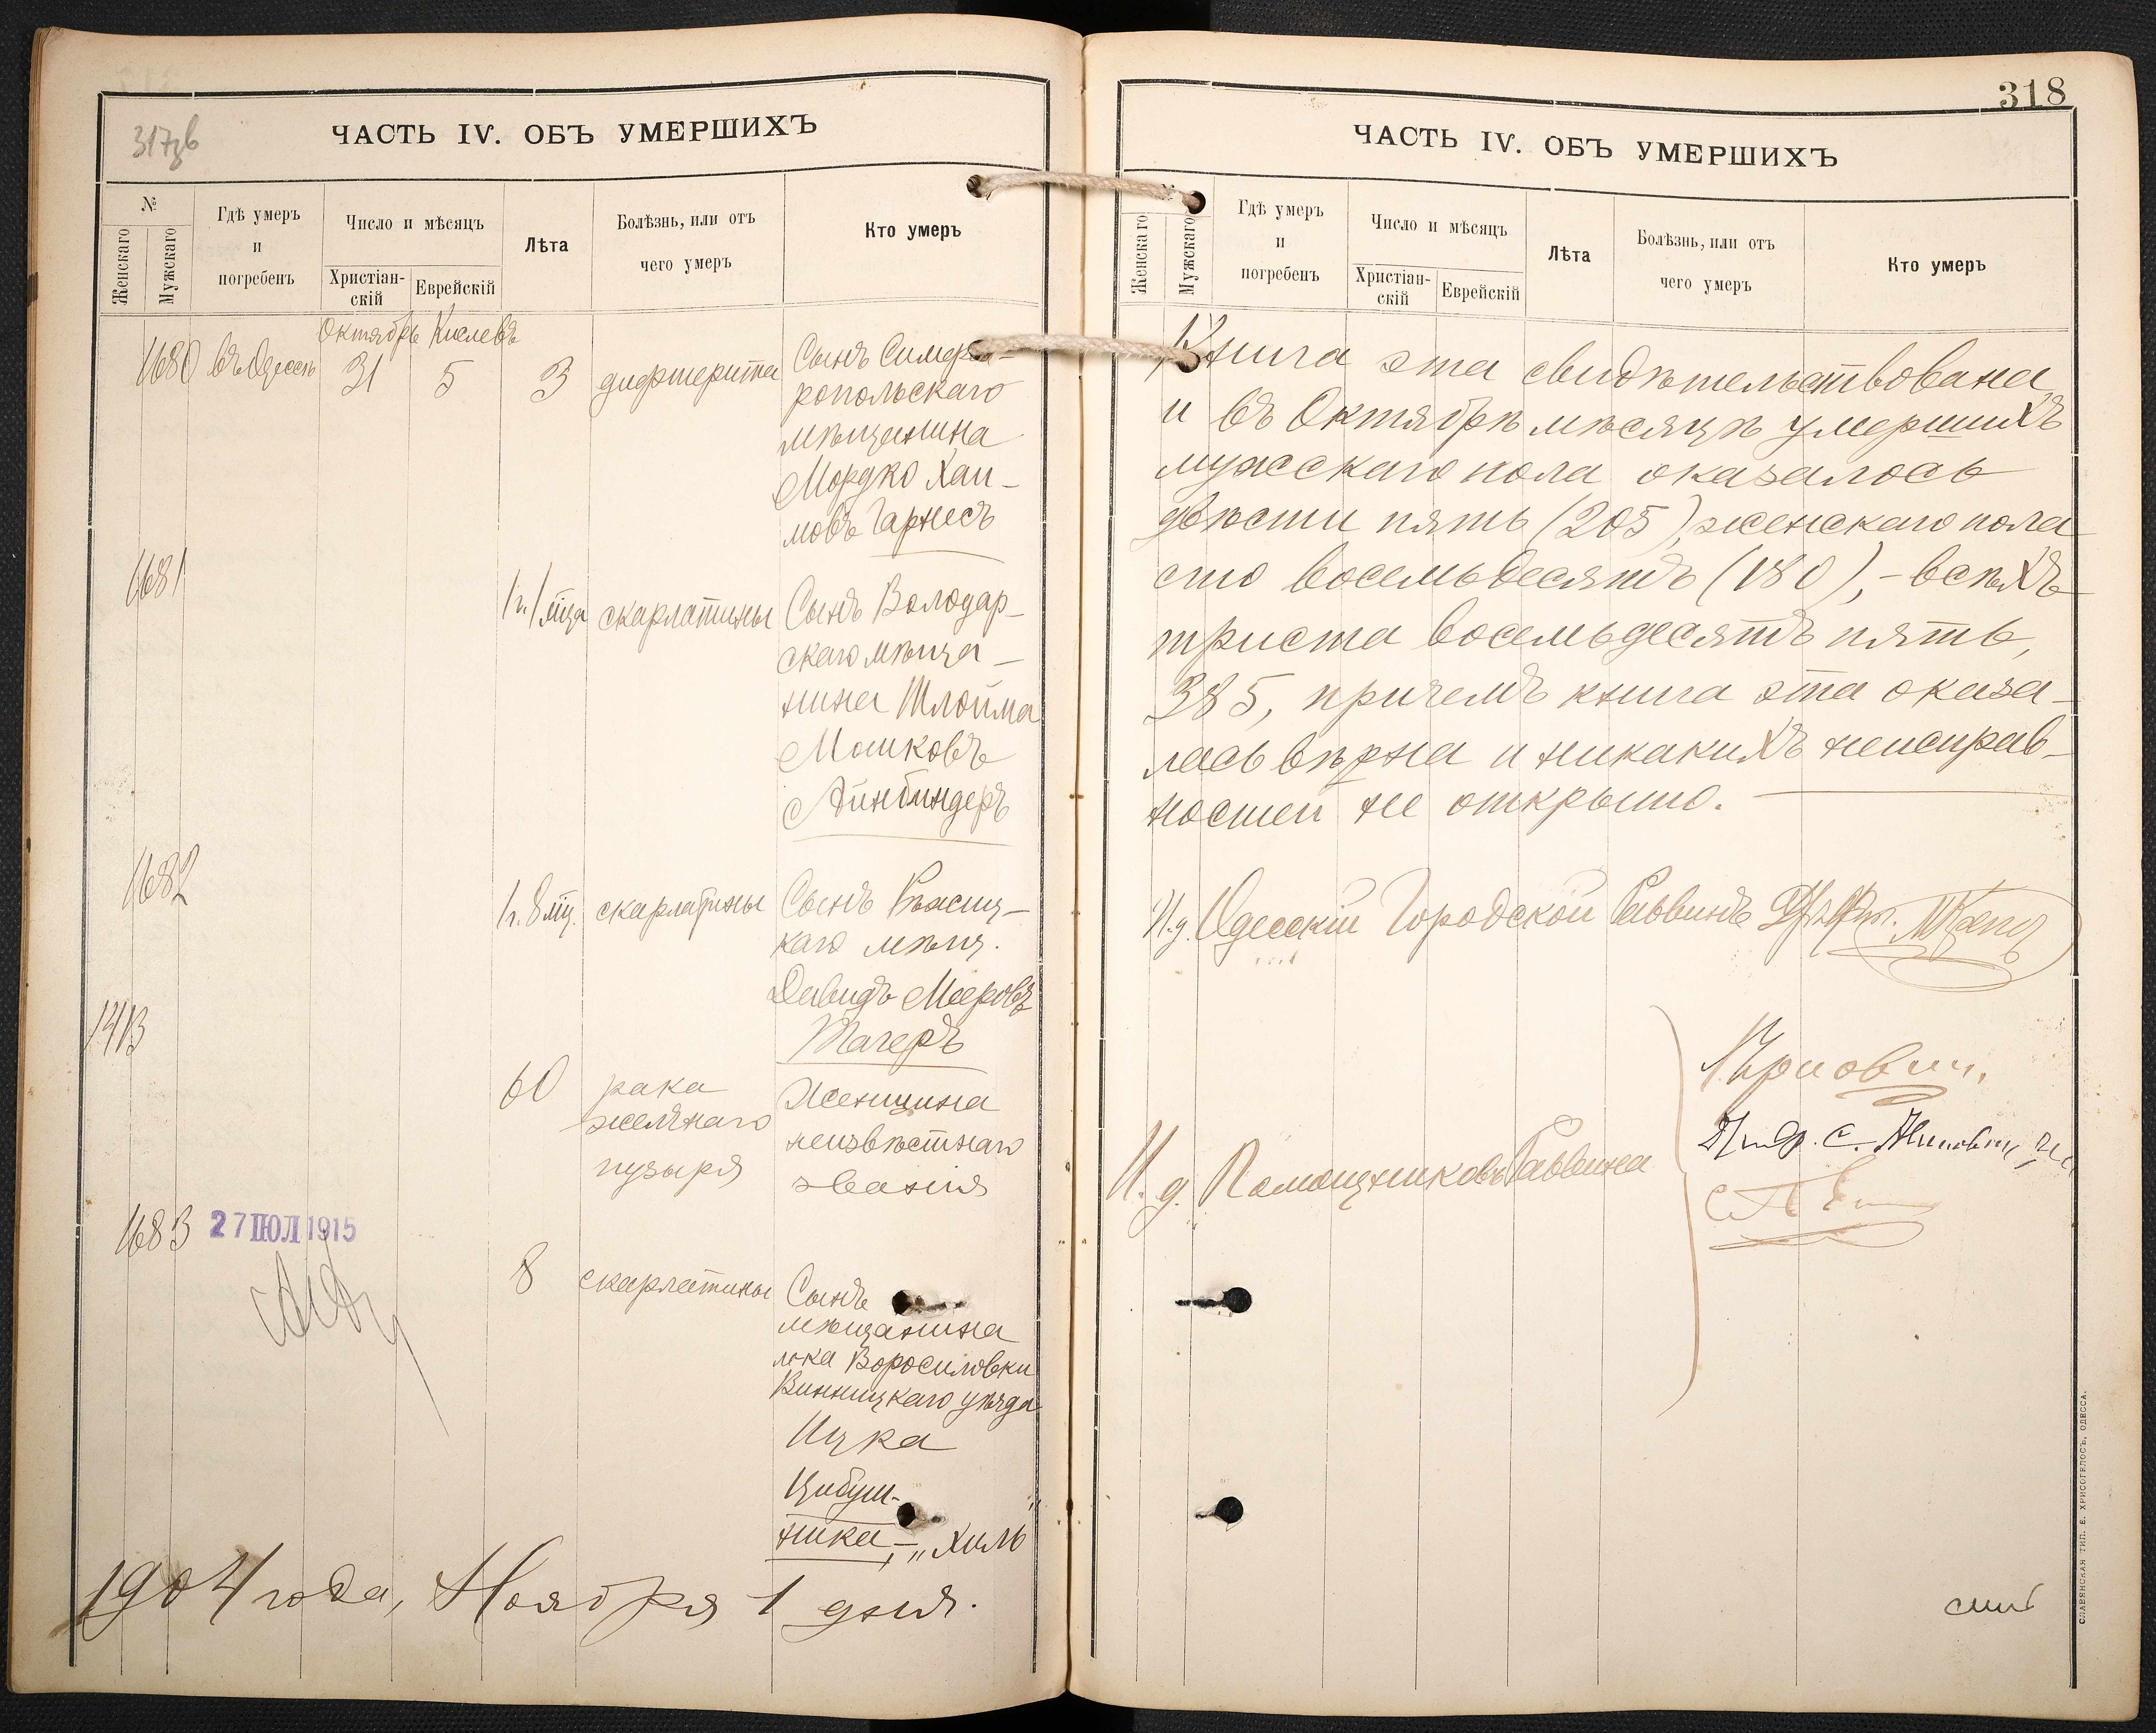 317об
ЧАСТЬ IV. ОБЪ УМЕРШИХЪ
№
Женскаго
Мужскаго
Гдѣ умеръ
и
погребенъ
Число и мѣсяцъ
Христіан-
скій
Еврейскій
Лѣта
Болѣзнь, или отъ
чего умеръ
Кто умеръ
Октябрь Кислевъ
1680 въ Одессѣ 31 5 3 дифтерита Сынъ Симферо-
ропольскаго
мѣщанина
Мордко Хаи-
мовъ Гарнесъ
1681
1 г. 1 мца скарлатины Сынъ Володар-
скаго мѣща-
нина Шлойма
Мошковъ
Айнбиндеръ
1682
1 г. 8 мц. скарлатины Сынъ
каго мѣщ.
Давидъ Мееровъ
Тагеръ
1413
60 рака Женщина
желчнаго неизвѣстнаго
пузыря званія
1683 27 ІЮЛ 1915
8 скарлатины Сынъ
мѣщанина
м-ка Воросиловки
Винницкаго уѣзда
Ицка
Цибуш-
ника, - „Хиль"
1904 года, Ноября 1 дня.
318
ЧАСТЬ IV. ОБЪ УМЕРШИХЪ
№
Женскаго
Мужскаго
Гдѣ умеръ
и
погребенъ
Число и мѣсяцъ
Христіан-
скій
Еврейскій
Лѣта
Болѣзнь, или отъ
чего умеръ
Кто умеръ
Книга эта свидѣтельствована
и въ Октябрѣ мѣсяцѣ умершихъ
мужскаго пола оказалось
двѣсти пять (205), женскаго пола
сто восемьдесятъ (180), - всѣхъ
триста восемьдесятъ пять,
385, причемъ книга эта оказа-
лась вѣрна и никакихъ неисправ-
ностей не открыто.
И. д. Одесскій Городской Раввинъ
И. д. Помощниковъ Раввина
СЛАВЯНСКАЯ ТИП. Е. ХРИСОГЕЛОСЪ, ОДЕССА.